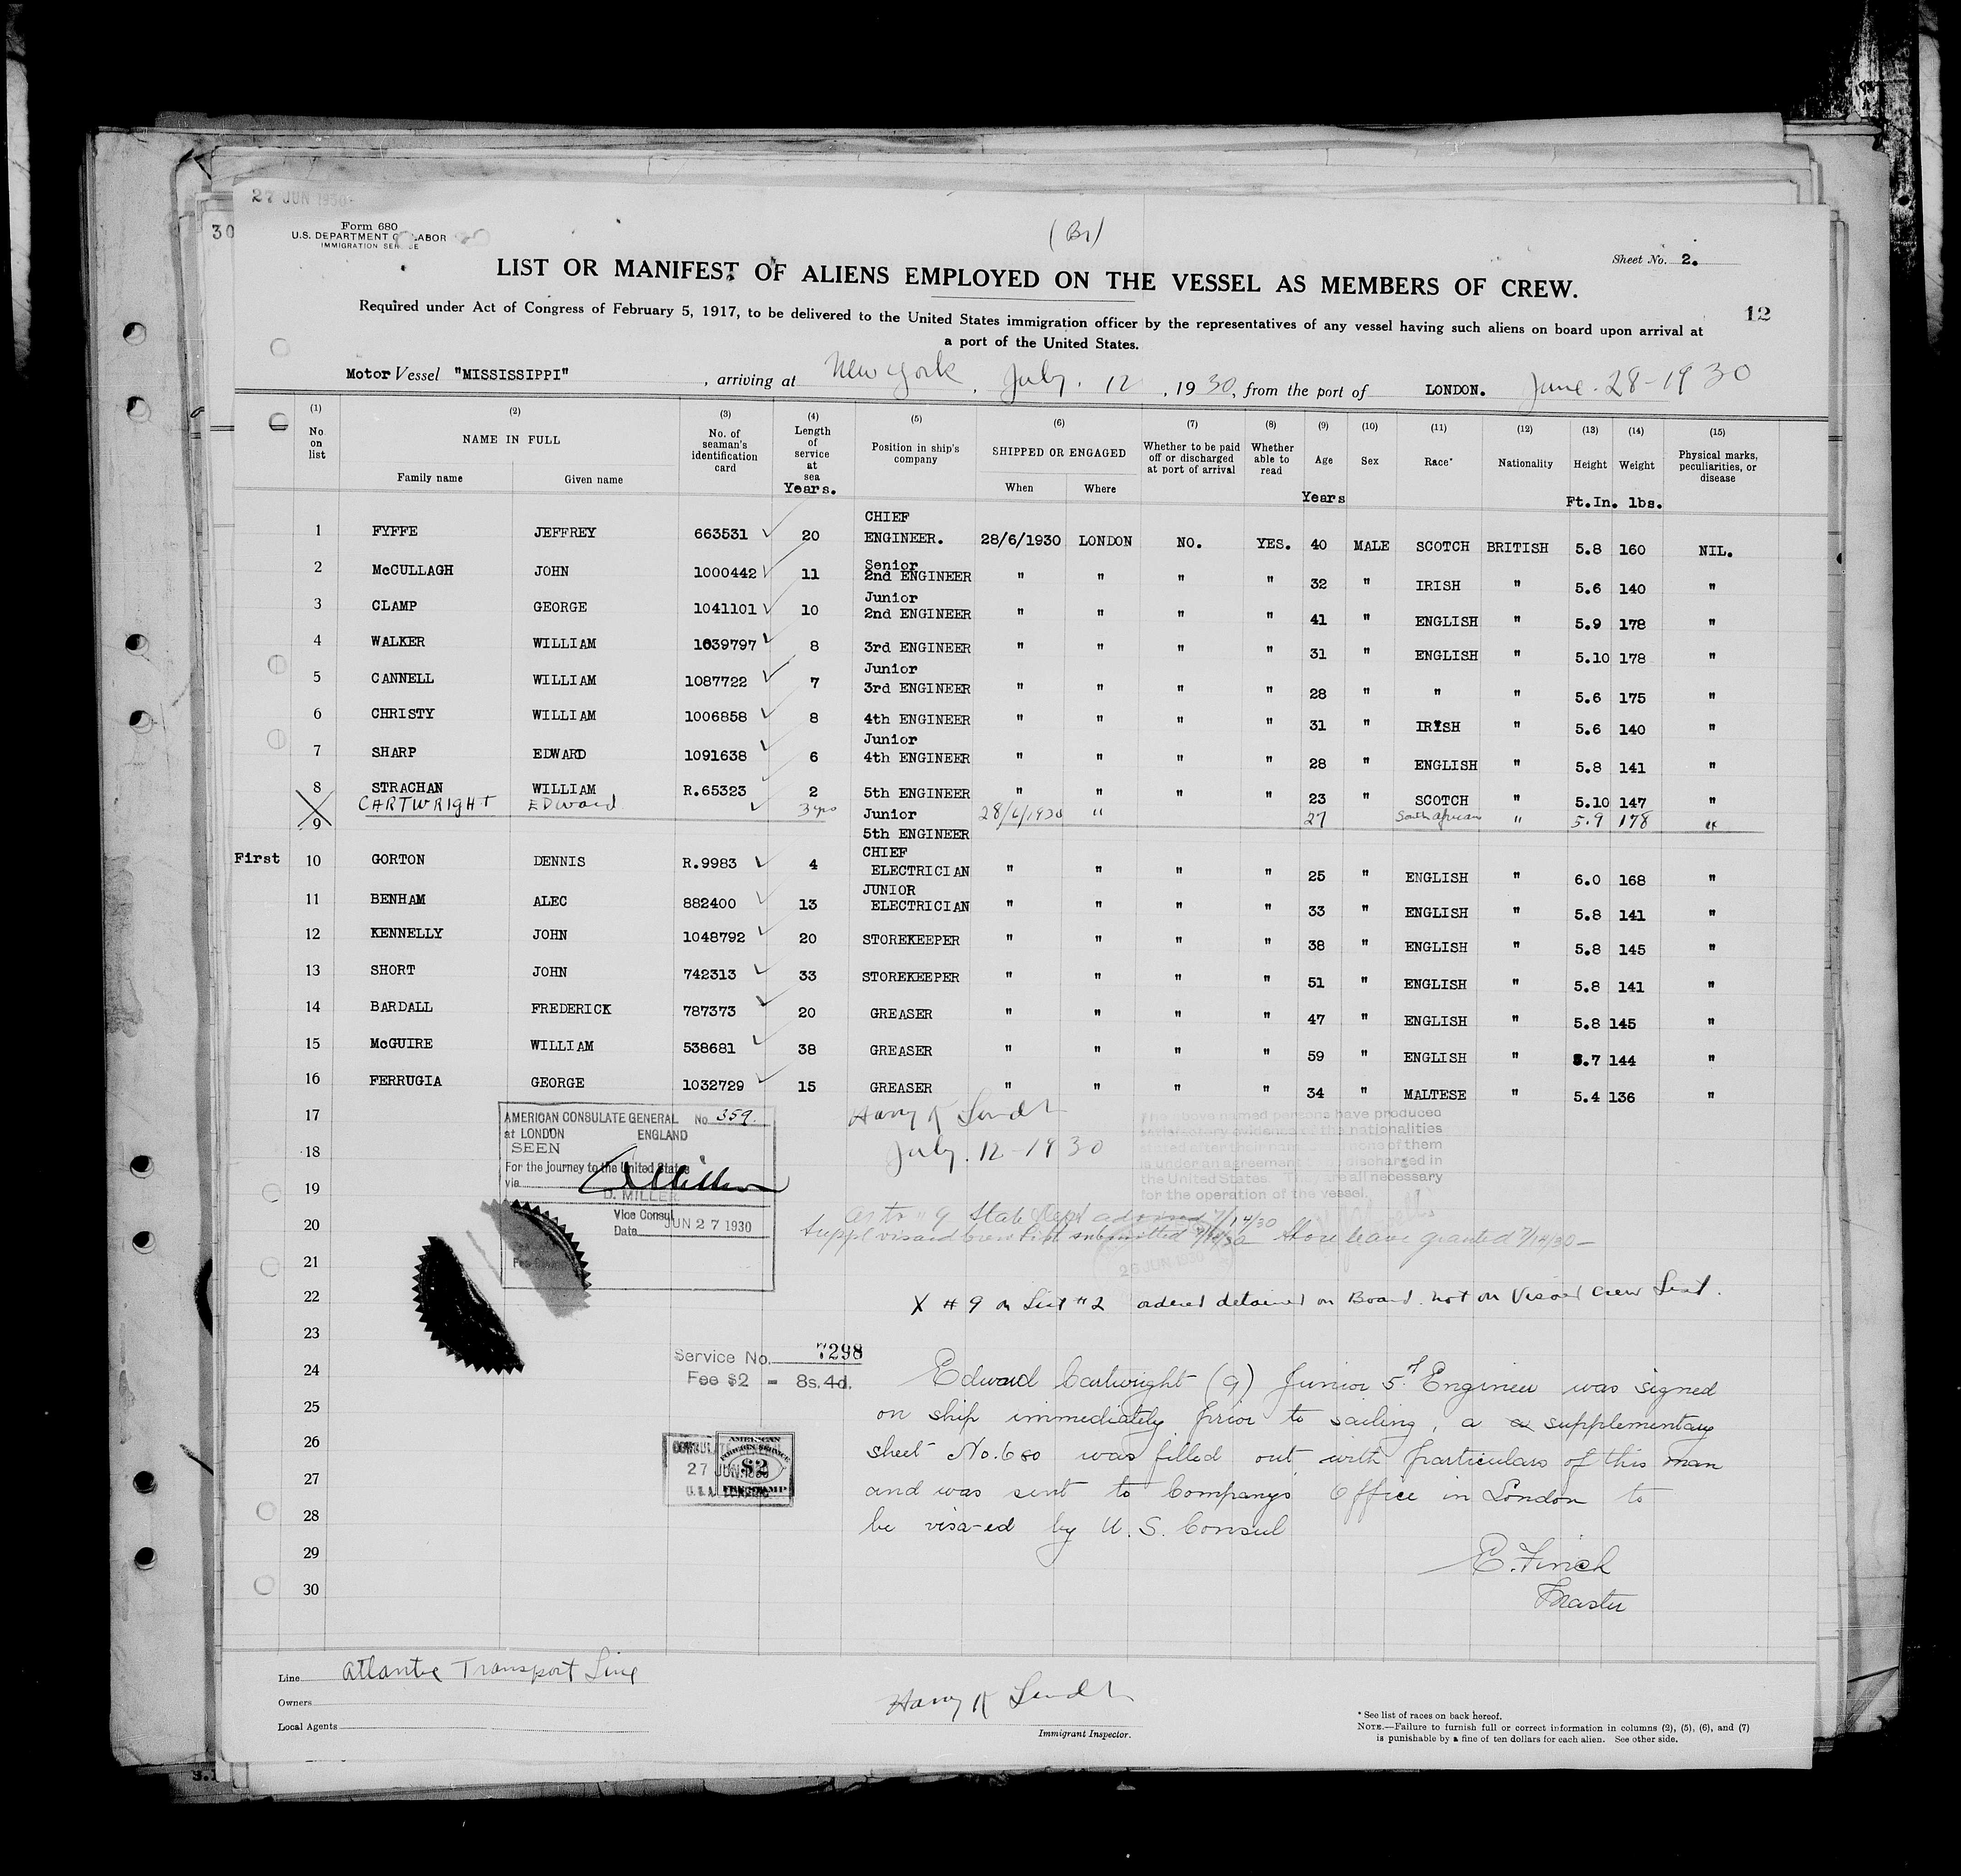 27 JUN 1930
30
Form 680
U.S. DEPARTMENT OF LABOR
IMMIGRATION SERVICE
(Br)
Sheet No. 2.
LIST OR MANIFEST OF ALIENS EMPLOYED ON THE VESSEL AS MEMBERS OF CREW.
12
Required under Act of Congress of February 5, 1917, to be delivered to the United States immigration officer by the representatives of any vessel having such aliens on board upon arrival at
a port of the United States.
Motor Vessel "MISSISSIPPI" , arriving at New York , July. 12 , 1930, from the port of LONDON. June. 28-1930
(1) (2) (3) (4) (5) (6) (7) (8) (9) (10) (11) (12) (13) (14) (15)
No on list NAME IN FULL Family name Given name No. of seaman's identification card Length of service at sea Years. Position in ship's company SHIPPED OR ENGAGED When Where Whether to be paid off or discharged at port of arrival Whether able to read Age Years Sex Race* Nationality Height Ft.In. Weight lbs. Physical marks, peculiarities, or disease
1 FYFFE JEFFREY 663531 20 CHIEF ENGINEER. 28/6/1930 LONDON NO. YES. 40 MALE SCOTCH BRITISH 5.8 160 NIL.
2 McCULLAGH JOHN 1000442 11 Senior 2nd ENGINEER " " " " 32 " IRISH " 5.6 140 "
3 CLAMP GEORGE 1041101 10 Junior 2nd ENGINEER " " " " 41 " ENGLISH " 5.9 178 "
4 WALKER WILLIAM 1039797 8 3rd ENGINEER " " " " 31 " ENGLISH " 5.10 178 "
5 CANNELL WILLIAM 1087722 7 Junior 3rd ENGINEER " " " " 28 " " " 5.6 175 "
6 CHRISTY WILLIAM 1006858 8 4th ENGINEER " " " " 31 " IRISH " 5.6 140 "
7 SHARP EDWARD 1091638 6 Junior 4th ENGINEER " " " " 28 " ENGLISH " 5.8 141 "
8 STRACHAN WILLIAM R.65323 2 5th ENGINEER " " " " 23 " SCOTCH " 5.10 147 "
X 9 CARTWRIGHT EDward 3 yrs Junior 5th ENGINEER 28/6/1930 " 27 South African " 5.9 178 "
First 10 GORTON DENNIS R.9983 4 CHIEF ELECTRICIAN " " " " 25 " ENGLISH " 6.0 168 "
11 BENHAM ALEC 882400 13 JUNIOR ELECTRICIAN " " " " 33 " ENGLISH " 5.8 141 "
12 KENNELLY JOHN 1048792 20 STOREKEEPER " " " " 38 " ENGLISH " 5.8 145 "
13 SHORT JOHN 742313 33 STOREKEEPER " " " " 51 " ENGLISH " 5.8 141 "
14 BARDALL FREDERICK 787373 20 GREASER " " " " 47 " ENGLISH " 5.8 145 "
15 McGUIRE WILLIAM 538681 38 GREASER " " " " 59 " ENGLISH " 5.7 144 "
16 FERRUGIA GEORGE 1032729 15 GREASER " " " " 34 " MALTESE " 5.4 136 "
17
18
19
20
21
22
23
24
25
26
27
28
29
30
AMERICAN CONSULATE GENERAL No. 359.
at LONDON ENGLAND
SEEN
For the journey to the United States
via
D. MILLER
Vice Consul
Date JUN 27 1930
Harry K
July. 12-1930
The above named persons have produced
satisfactory evidence of the nationalities
stated after their names. None of them
is under an agreement discharged in
the United States. They are all necessary
for the operation of the vessel.
As to #9 State Dept advised 7/14/30
Suppl visaed crew list submitted Shore leave granted 7/14/30-
28 JUN 1930
X #9 on List #2 ordered detained on Board. not on Visaed Crew List.
Service No. 7298
Fee $2 = 8s. 4d.
27 JUN 1930
AMERICAN
FOREIGN SERVICE
$2
FEE STAMP
Edward Cartwright (9) Junior 5th Engineer was signed
on ship immediately prior to sailing, a a supplementary
sheet No. 680 was filled out with particulars of this man
and was sent to Company's Office in London to
be visa-ed by U.S. Consul
E. Finch
Master
Line Atlantic Transport Line
Owners
Local Agents
Harry K
Immigrant Inspector.
* See list of races on back hereof.
NOTE.—Failure to furnish full or correct information in columns (2), (5), (6), and (7)
is punishable by a fine of ten dollars for each alien. See other side.